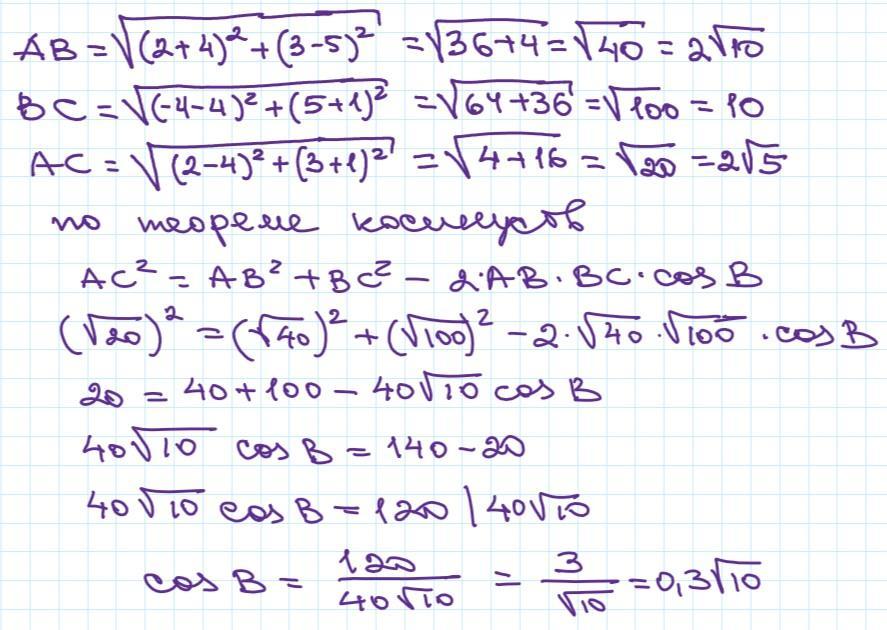 AB = √((2+4)² + (3-5)²) = √(36+4) = √40 = 2√10
BC = √((-4-4)² + (5+1)²) = √(64+36) = √100 = 10
AC = √((2-4)² + (3+1)²) = √(4+16) = √20 = 2√5
по теореме косинусов
AC² = AB² + BC² - 2·AB·BC·cos B
(√20)² = (√40)² + (√100)² - 2·√40·√100·cos B
20 = 40+100 - 40√10 cos B
40√10 cos B = 140-20
40√10 cos B = 120 | 40√10
cos B = 120/(40√10) = 3/√10 = 0,3√10